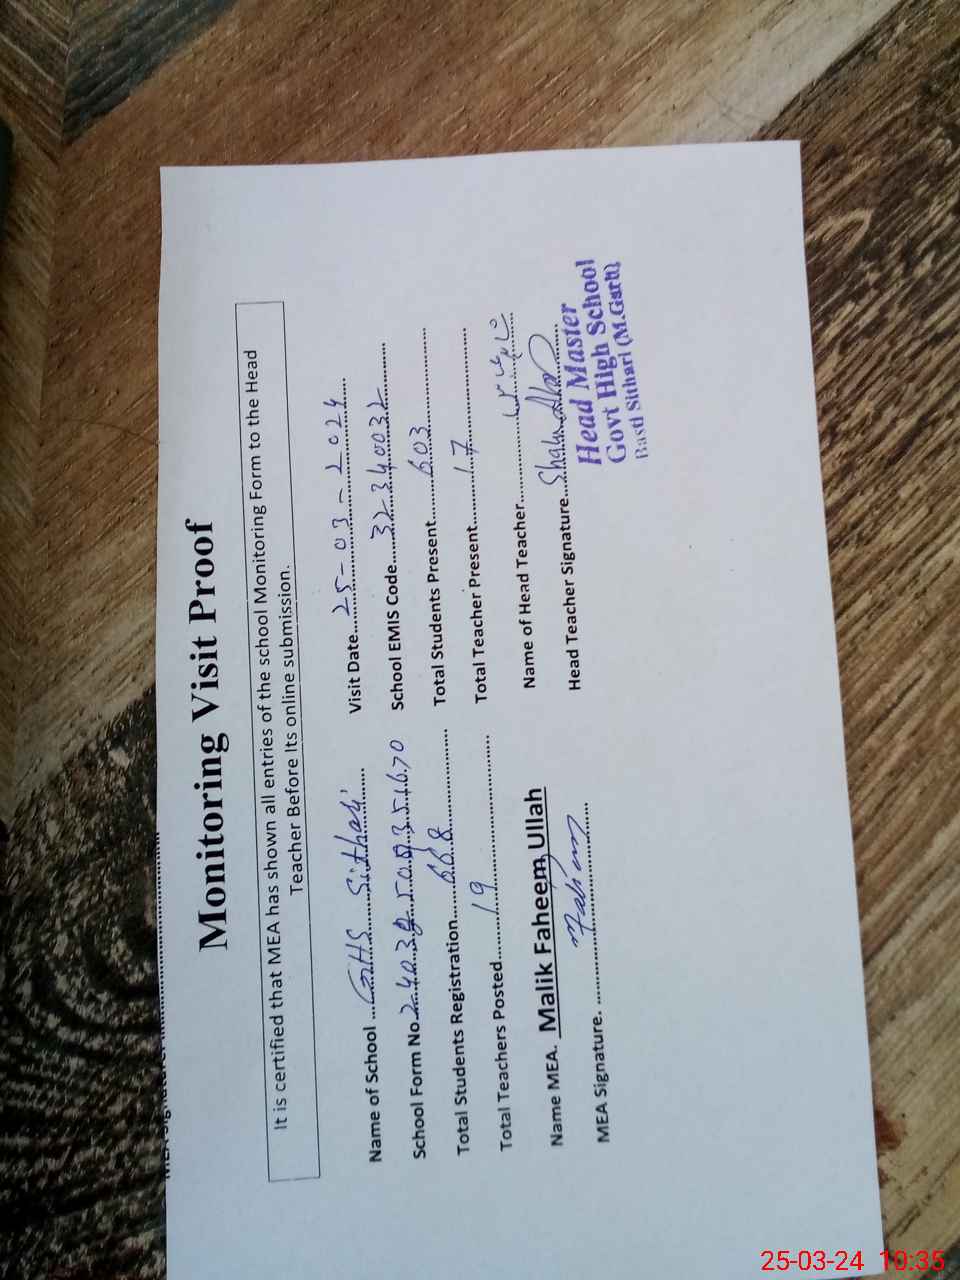 Monitoring Visit Proof
It is certified that MEA has shown all entries of the school Monitoring Form to the Head
Teacher Before Its online submission.
Name of School ....GHS Sithari..... Visit Date....25-03-2024.....
School Form No. School EMIS Code....32340032.....
Total Students Registration....668..... Total Students Present....603.....
Total Teachers Posted....19..... Total Teacher Present....17.....
Name MEA. Malik Faheem Ullah Name of Head Teacher.....
MEA Signature. ....Fahim..... Head Teacher Signature.....
Head Master
Govt High School
Basti Sithari (M.Garh)
25-03-24 10:35